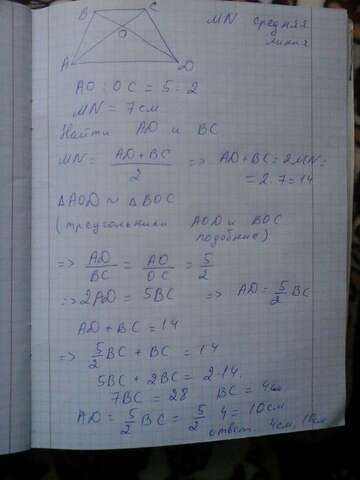 B C
MN средняя
линия
O
A D
AO : OC = 5 : 2
MN = 7 см
Найти AD и BC
MN = (AD + BC)/2 => AD + BC = 2MN =
= 2 · 7 = 14
△AOD ~ △BOC
(треугольники AOD и BOC
подобные)
=> AD/BC = AO/OC = 5/2
=> 2AD = 5BC => AD = 5/2 BC
AD + BC = 14
=> 5/2 BC + BC = 14
5BC + 2BC = 2·14.
7BC = 28 BC = 4см
AD = 5/2 BC = 5/2 · 4 = 10см
ответ. 4см, 10см